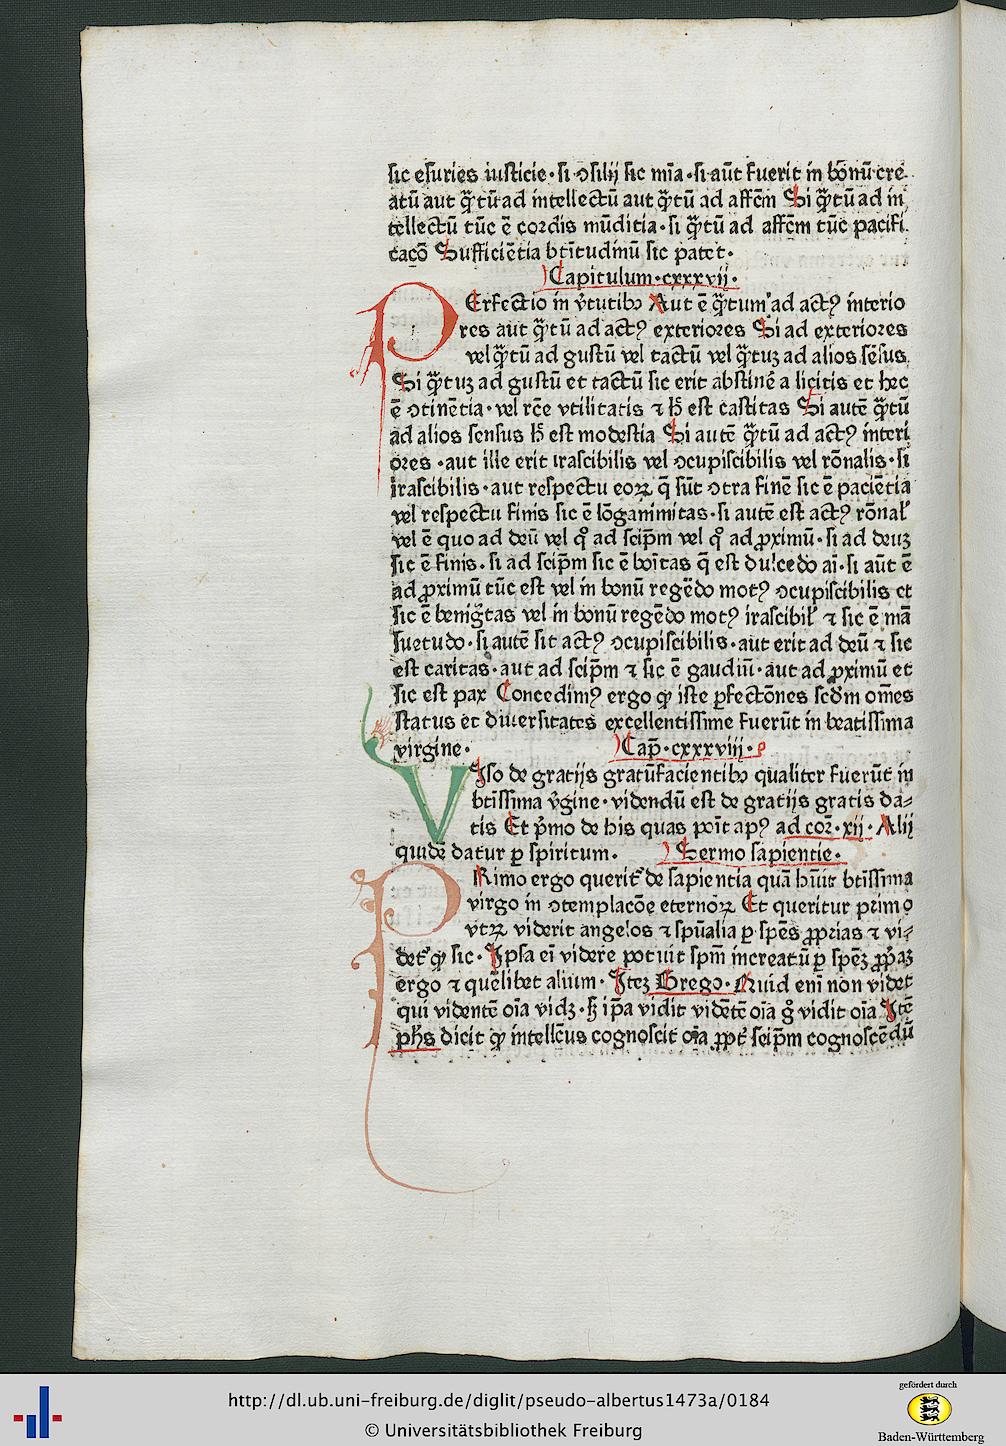 sic esuries iusticie · si ↄsilij sic mīa · si aūt fuerit in bonū cre-
atū aut q̄ꝫtū ad intellectū aut q̄ꝫtū ad affc̄m Si q̄ꝫtū ad in
tellectū tūc ē cordis mūditia · si q̄ꝫtū ad affc̄m tūc pacifi.
cacō Sufficiētia btītudinū sic patet ·
Capitulum · cxxxvij ·
PErfectio in v̄tutibꝫ Aut ē q̄ꝫtum ad actꝰ interio
res aut q̄ꝫtū ad actꝰ exteriores Si ad exteriores
vel q̄ꝫtū ad gustū vel tactū vel q̄ꝫtuꝫ ad alios sēsus
Si q̄ꝫtuꝫ ad gustū et tactū sic erit abstinē a licitis et hec
ē ↄtinētia · vel rc̄e vtilitatis ⁊ h̄ est castitas Si autē q̄ꝫtū
ad alios sensus h̄ est modestia Si autē q̄ꝫtū ad actꝰ interi
ores · aut ille erit irascibilis vel ↄcupiscibilis vel rōnalis · si
irascibilis · aut respectu eoꝝ q̄ sūt ↄtra finē sic ē paciētia
vel respectu finis sic ē lōganimitas · si autē est actꝰ rōnal̕
vel ē quo ad deū vel qͦ ad seip̄m vel qͦ ad ꝓximū · si ad deuꝫ
sic ē finis · si ad seip̄m sic ē boītas q̄ est dulcedo ai · si aūt ē
ad ꝓximū tūc est vel in bonū regēdo motꝰ ↄcupiscibilis et
sic ē beniḡtas vel in bonū regēdo motꝰ irascibil̕ ⁊ sic ē mā
suetudo · si autē sit actꝰ ↄcupiscibilis · aut erit ad deū ⁊ sic
est caritas · aut ad seip̄m ⁊ sic ē gaudiū · aut ad ꝓximū et
sic est pax Concedimꝰ ergo ꝙ iste ꝑfectōnes scd̄m om̄es
status et diuersitates excellentissime fuerūt in beatissima
virgine ·
Cap̄ · cxxxviij ·
VIso de gratijs gratūfacientibꝫ qualiter fuerūt in
btīssima v̄gine · videndū est de gratijs gratis da-
tis Et p̄mo de his quas poīt apꝰ ad cor̄ · xij · Alij
quidē datur ꝑ spiritum ·
Sermo sapientie ·
PRimo ergo querit᷑ de sapientia quā hūit btīssima
virgo in ↄtemplacōe eternōꝝ Et queritur primo
vtꝝ viderit angelos ⁊ spūalia ꝑ spēs ꝓprias ⁊ vi-
det᷑ ꝙ sic · Ipsa ei videre potuit spm̄ increatū ꝑ spēꝫ ꝓp̄aꝫ
ergo ⁊ quēlibet alium · Iteꝫ Grego · Quid eni non videt
qui videntē oīa vidꝫ · sꝫ ip̄a vidit vidētē oīa gͦ vidit oīa Itē
ph̄s dicit ꝙ intellc̄us cognoscit oīa ꝓpt᷑ seip̄m cognoscēdū
http://dl.ub.uni-freiburg.de/diglit/pseudo-albertus1473a/0184
© Universitätsbibliothek Freiburg
gefördert durch
Baden-Württemberg